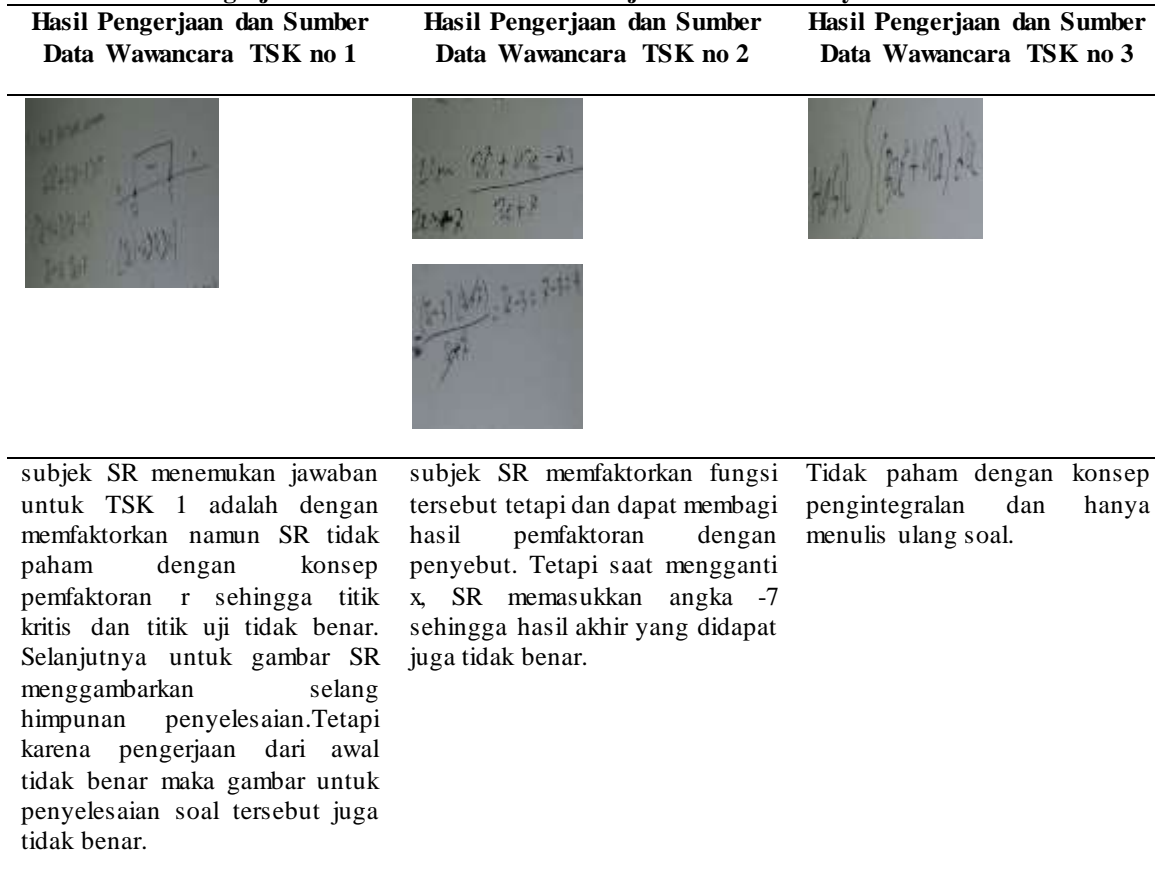 Hasil Pengerjaan dan Sumber
Data Wawancara TSK no 1
Hasil Pengerjaan dan Sumber
Data Wawancara TSK no 2
Hasil Pengerjaan dan Sumber
Data Wawancara TSK no 3
subjek SR menemukan jawaban
untuk TSK 1 adalah dengan
memfaktorkan namun SR tidak
paham dengan konsep
pemfaktoran r sehingga titik
kritis dan titik uji tidak benar.
Selanjutnya untuk gambar SR
menggambarkan selang
himpunan penyelesaian.Tetapi
karena pengerjaan dari awal
tidak benar maka gambar untuk
penyelesaian soal tersebut juga
tidak benar.
subjek SR memfaktorkan fungsi
tersebut tetapi dan dapat membagi
hasil pemfaktoran dengan
penyebut. Tetapi saat mengganti
x, SR memasukkan angka -7
sehingga hasil akhir yang didapat
juga tidak benar.
Tidak paham dengan konsep
pengintegralan dan hanya
menulis ulang soal.